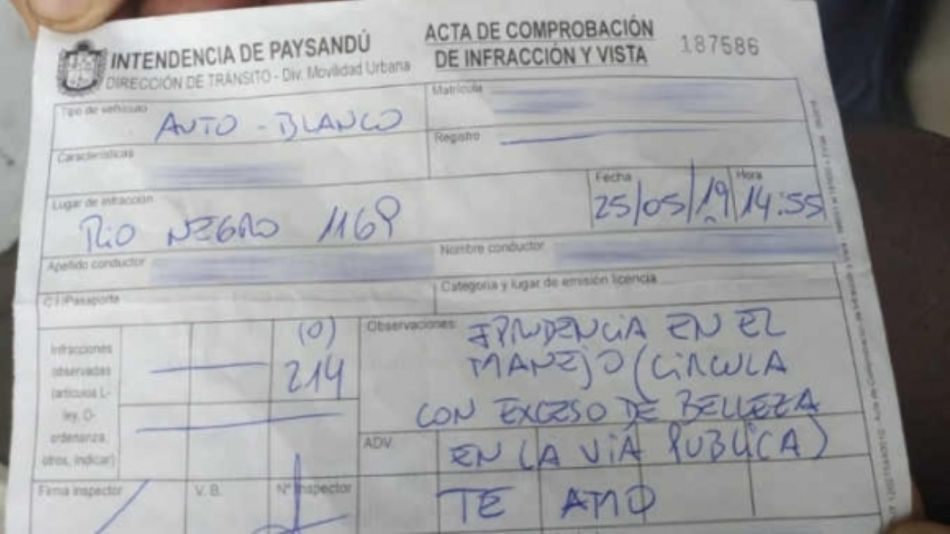 INTENDENCIA DE PAYSANDÚ
DIRECCIÓN DE TRÁNSITO - Div. Movilidad Urbana
ACTA DE COMPROBACIÓN
DE INFRACCIÓN Y VISTA
187586
Tipo de vehículo
AUTO - BLANCO
Matrícula
Registro
Características
Lugar de infracción
RIO NEGRO 1169
Fecha
25/05/19
Hora
14:55
Apellido conductor
Nombre conductor
C.I/Pasaporte
Categoría y lugar de emisión licencia
Infracciones
observadas
(artículos L-
ley, O-
ordenanza,
otros, indicar)
(O)
214
Observaciones:
IPRUDENCIA EN EL
MANEJO (CIRCULA
CON EXCESO DE BELLEZA
ADV.
EN LA VIA PUBLICA)
TE AMO
Firma inspector
V. B.
Nº Inspector